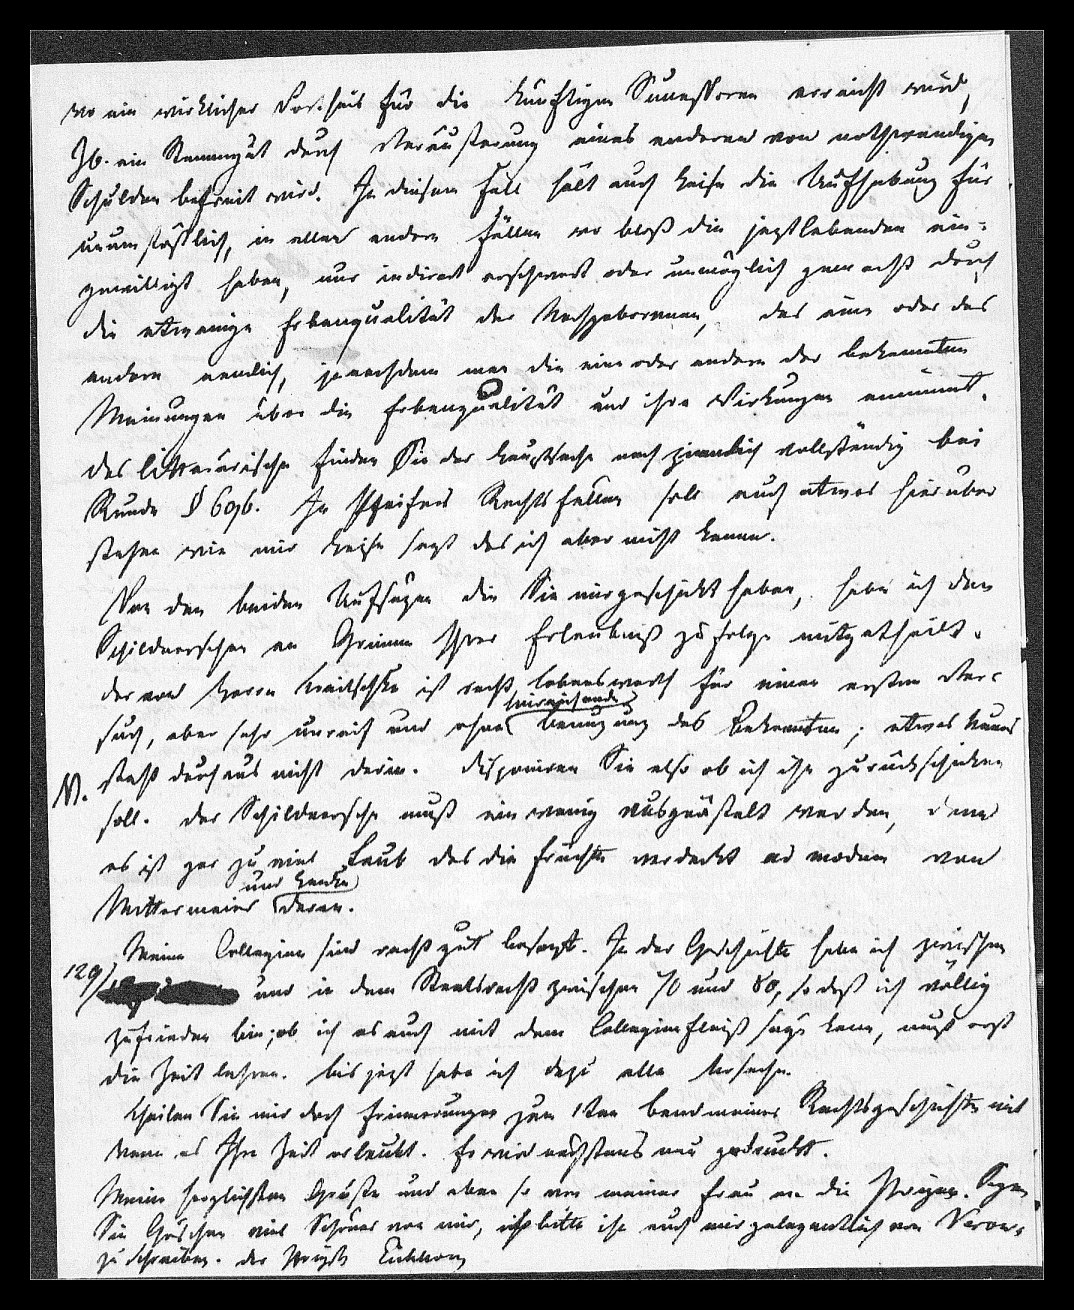 wo ein wirklicher Vortheil für die künftigen Successoren erreicht wird,
zb. ein Stammgut durch Veräusserung eines anderen von nothwendigen
Schulden befreit wird. In diesem Fall hält auch Heise die Aufhebung für
unumstößlich, in allen andern Fällen wo bloß die jeztlebenden ein-
gewilligt haben, nur indirect erschwert oder unmöglich gemacht durch
die etwanige Erbenqualität der Nachgebornen, das eine oder das
andere nemlich, jenachdem man die eine oder andere der bekannten
Meinungen über die Erbenqualität und ihre Wirkungen annimmt.
Das litterärische finden Sie der Hauptsache nach ziemlich vollständig bei
Runde § 696. In Pfeifers Rechtsfällen soll auch etwas hierüber
stehen wie mir Heise sagt das ich aber nicht kenne.
Von den beiden Aufsäzen die Sie mir geschickt haben, habe ich den
Schildnerschen an Grimm Ihrer Erlaubniß zufolge mitgetheilt.
Der von Herrn ist recht lobenswerth für einen ersten Ver-
such, aber sehr unreif und ohne hinreichende
Benuzung des Bekannten; etwas Neues
N. steht durchaus nicht darin. Disponiren Sie also ob ich ihn zurückschicken
soll. Der Schildnersche muß ein wenig ausgeästelt werden, denn
es ist gar zu viel Laub das die Früchte verdeckt ad modum von
und Henke
Mittermaier daran.
Meine Collegien sind recht gut besezt. In der Geschichte habe ich zwischen
129/ und in dem Staatsrecht zwischen 70 und 80, so daß ich völlig
zufrieden bin; ob ich es auch mit dem Collegienfleiß sagen kann, muß erst
die Zeit lehren. Bis jezt habe ich dazu alle Ursache.
Theilen Sie mir doch Erinnerungen zum 1ten Band meiner Rechtsgeschichte mit
wenn es Ihre Zeit erlaubt. Er wird nächstens neu gedruckt.
Meine herzlichsten Grüße und eben so von meiner Frau an die Ihrigen. Sagen
Sie Göschen viel Schönes von mir, ich bitte ihn auch mir gelegentlich von
zu schreiben. Der Ihrigste Eichhorn